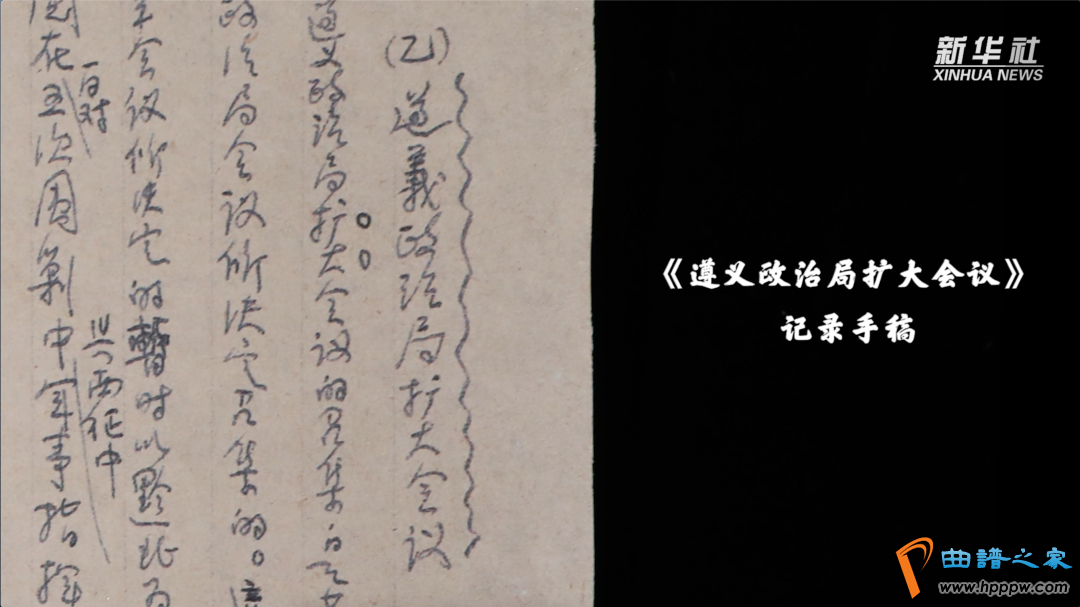 (乙)遵義政治局扩大会议
遵义政治局扩大会议的召集
政治局会议所决定召集的。
会议所决定的暂时以黔北为
一时对
与西征中
在五次围剿中军事指挥
新华社
XINHUA NEWS
《遵义政治局扩大会议》
记录手稿
曲谱之家
www.hppw.com